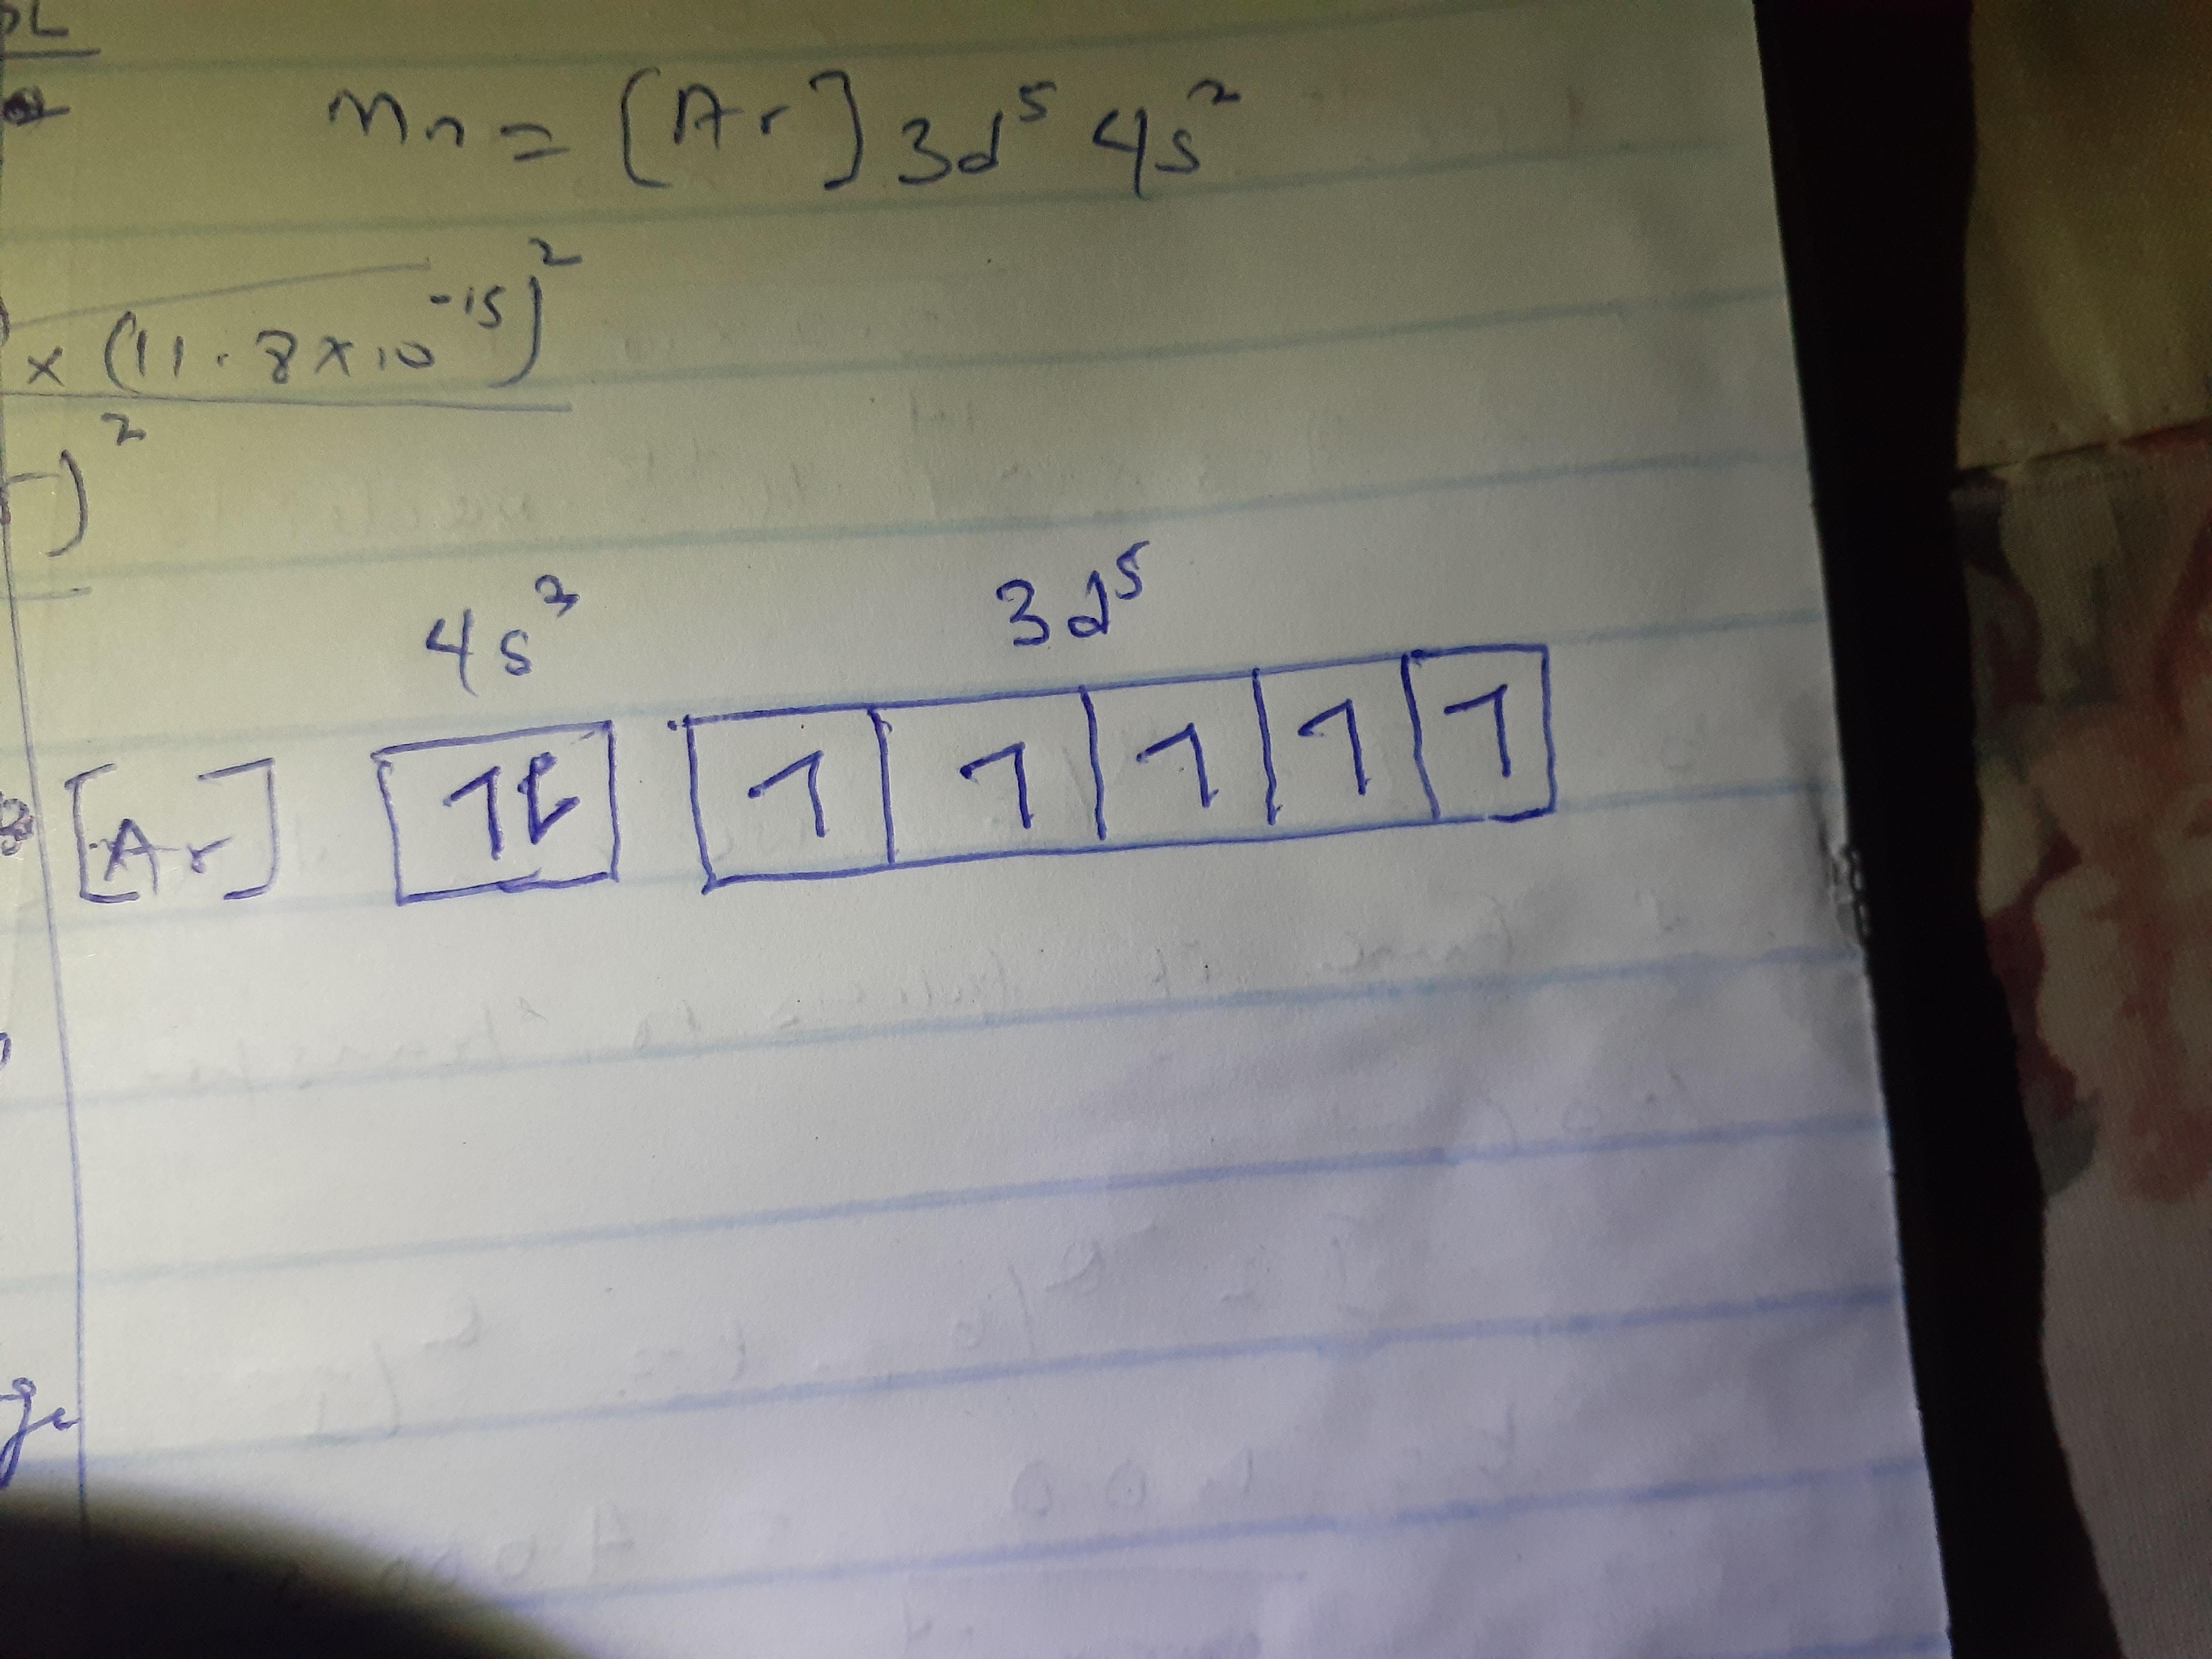 Mn = [Ar] 3d⁵ 4s²
x (11.8x10⁻¹⁵)²
)²
4s² 3d⁵
[Ar] ↿⇂ ↿ ↿ ↿ ↿ ↿